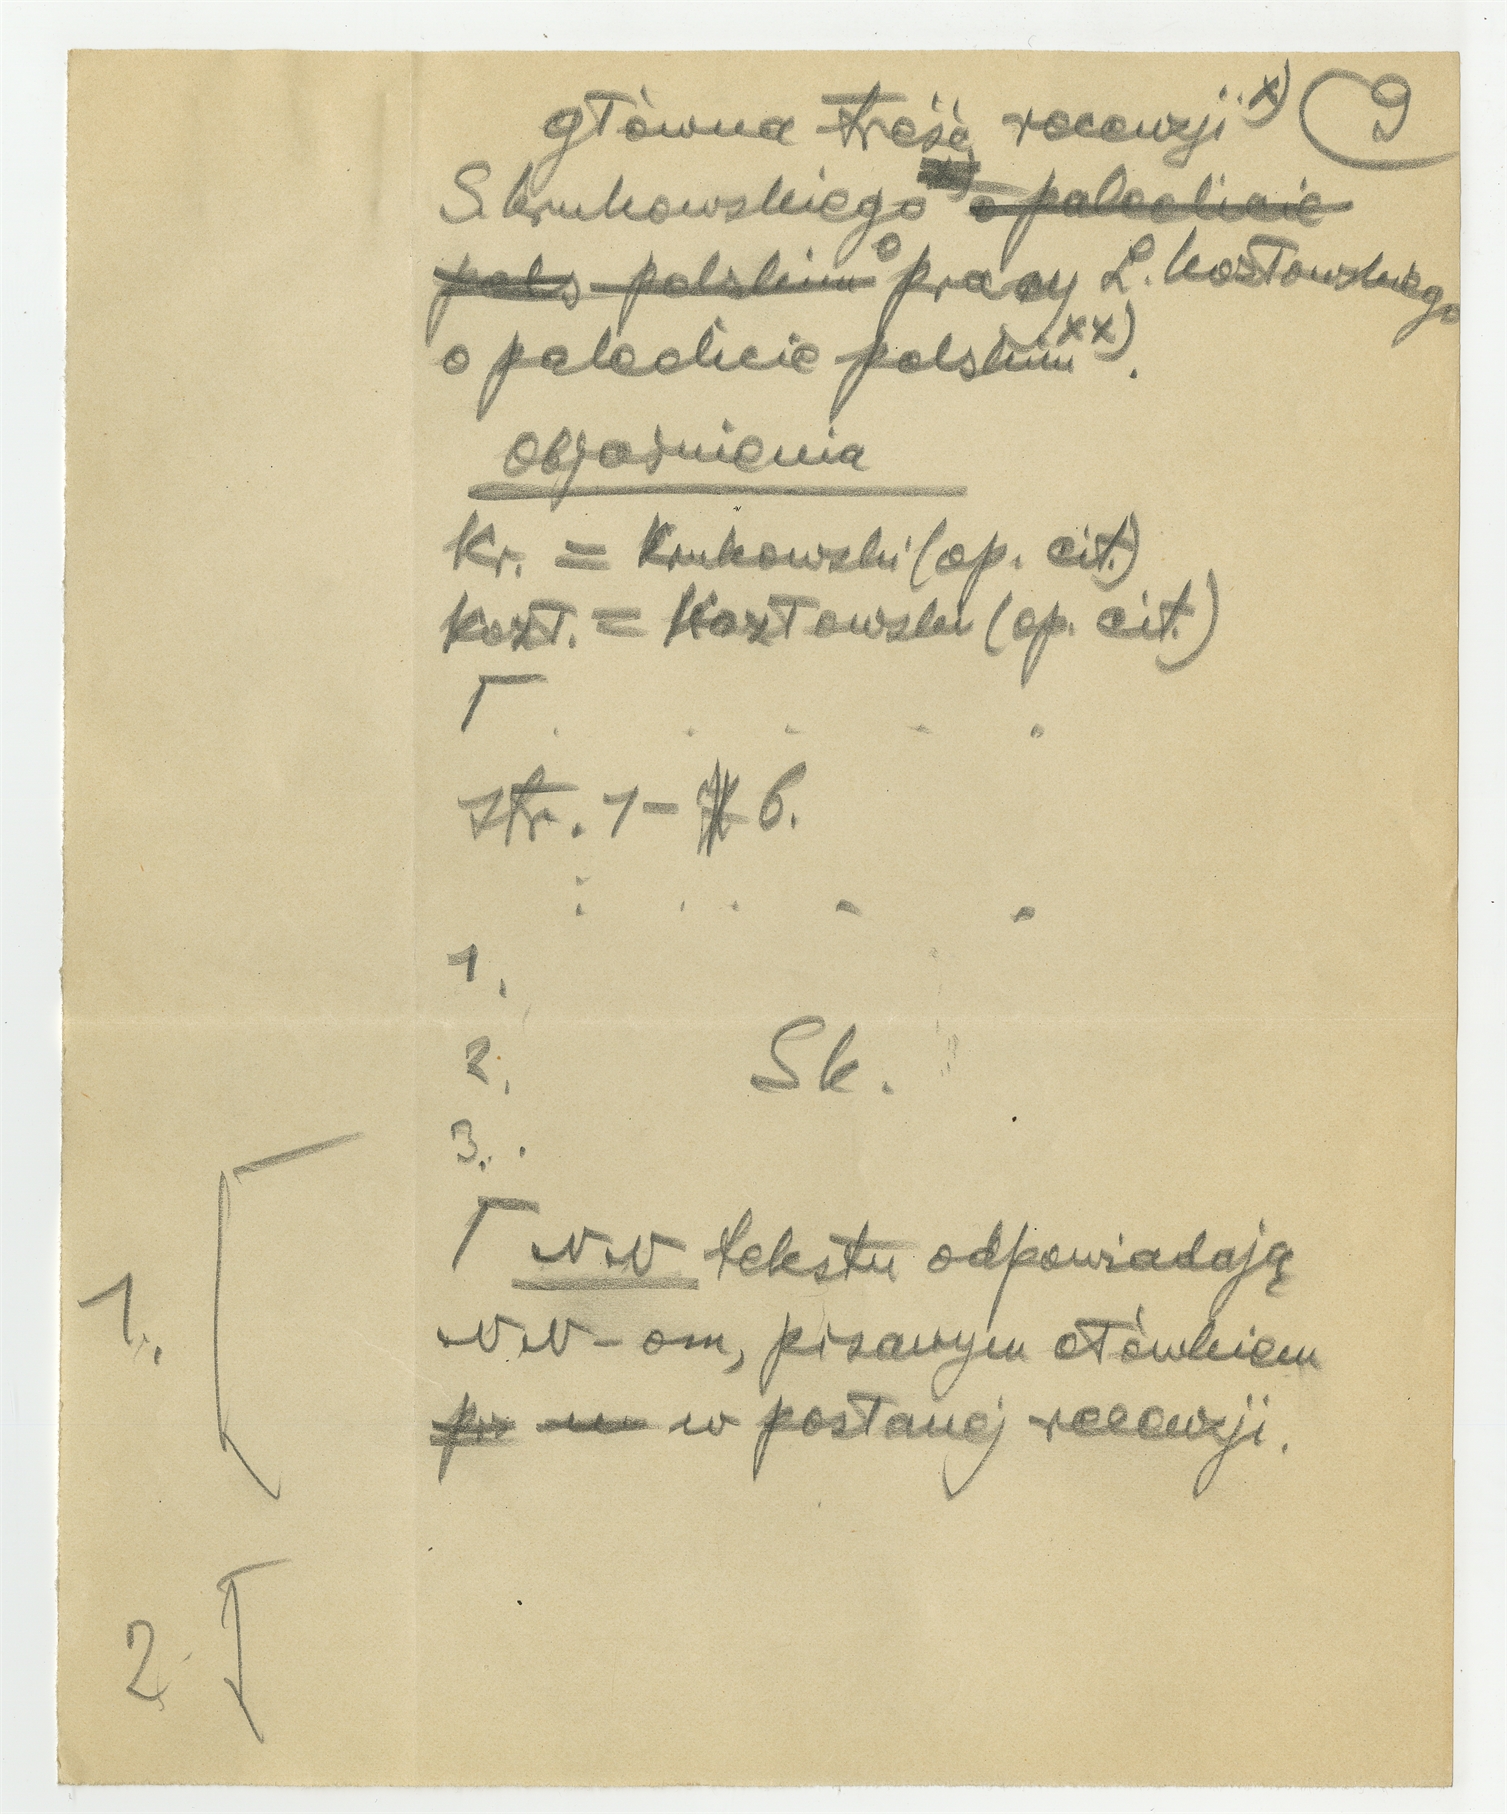 główna treść recenzji x) 9
S. Krukowskiego o paleolicie
pols polskim o pracy L. Kozłowskiego
o paleolicie polskim xx).
Objaśnienia
Kr. = Krukowski (op. cit.)
Kozł. = Kozłowski (op. cit.)
Γ . . . . .
str. 1 – 6.
: . . - .
1.
2. Sk.
3. .
Γ NN tekstu odpowiadają
1. NN-om, pisanym ołówkiem
w posłanej recenzji.
2.